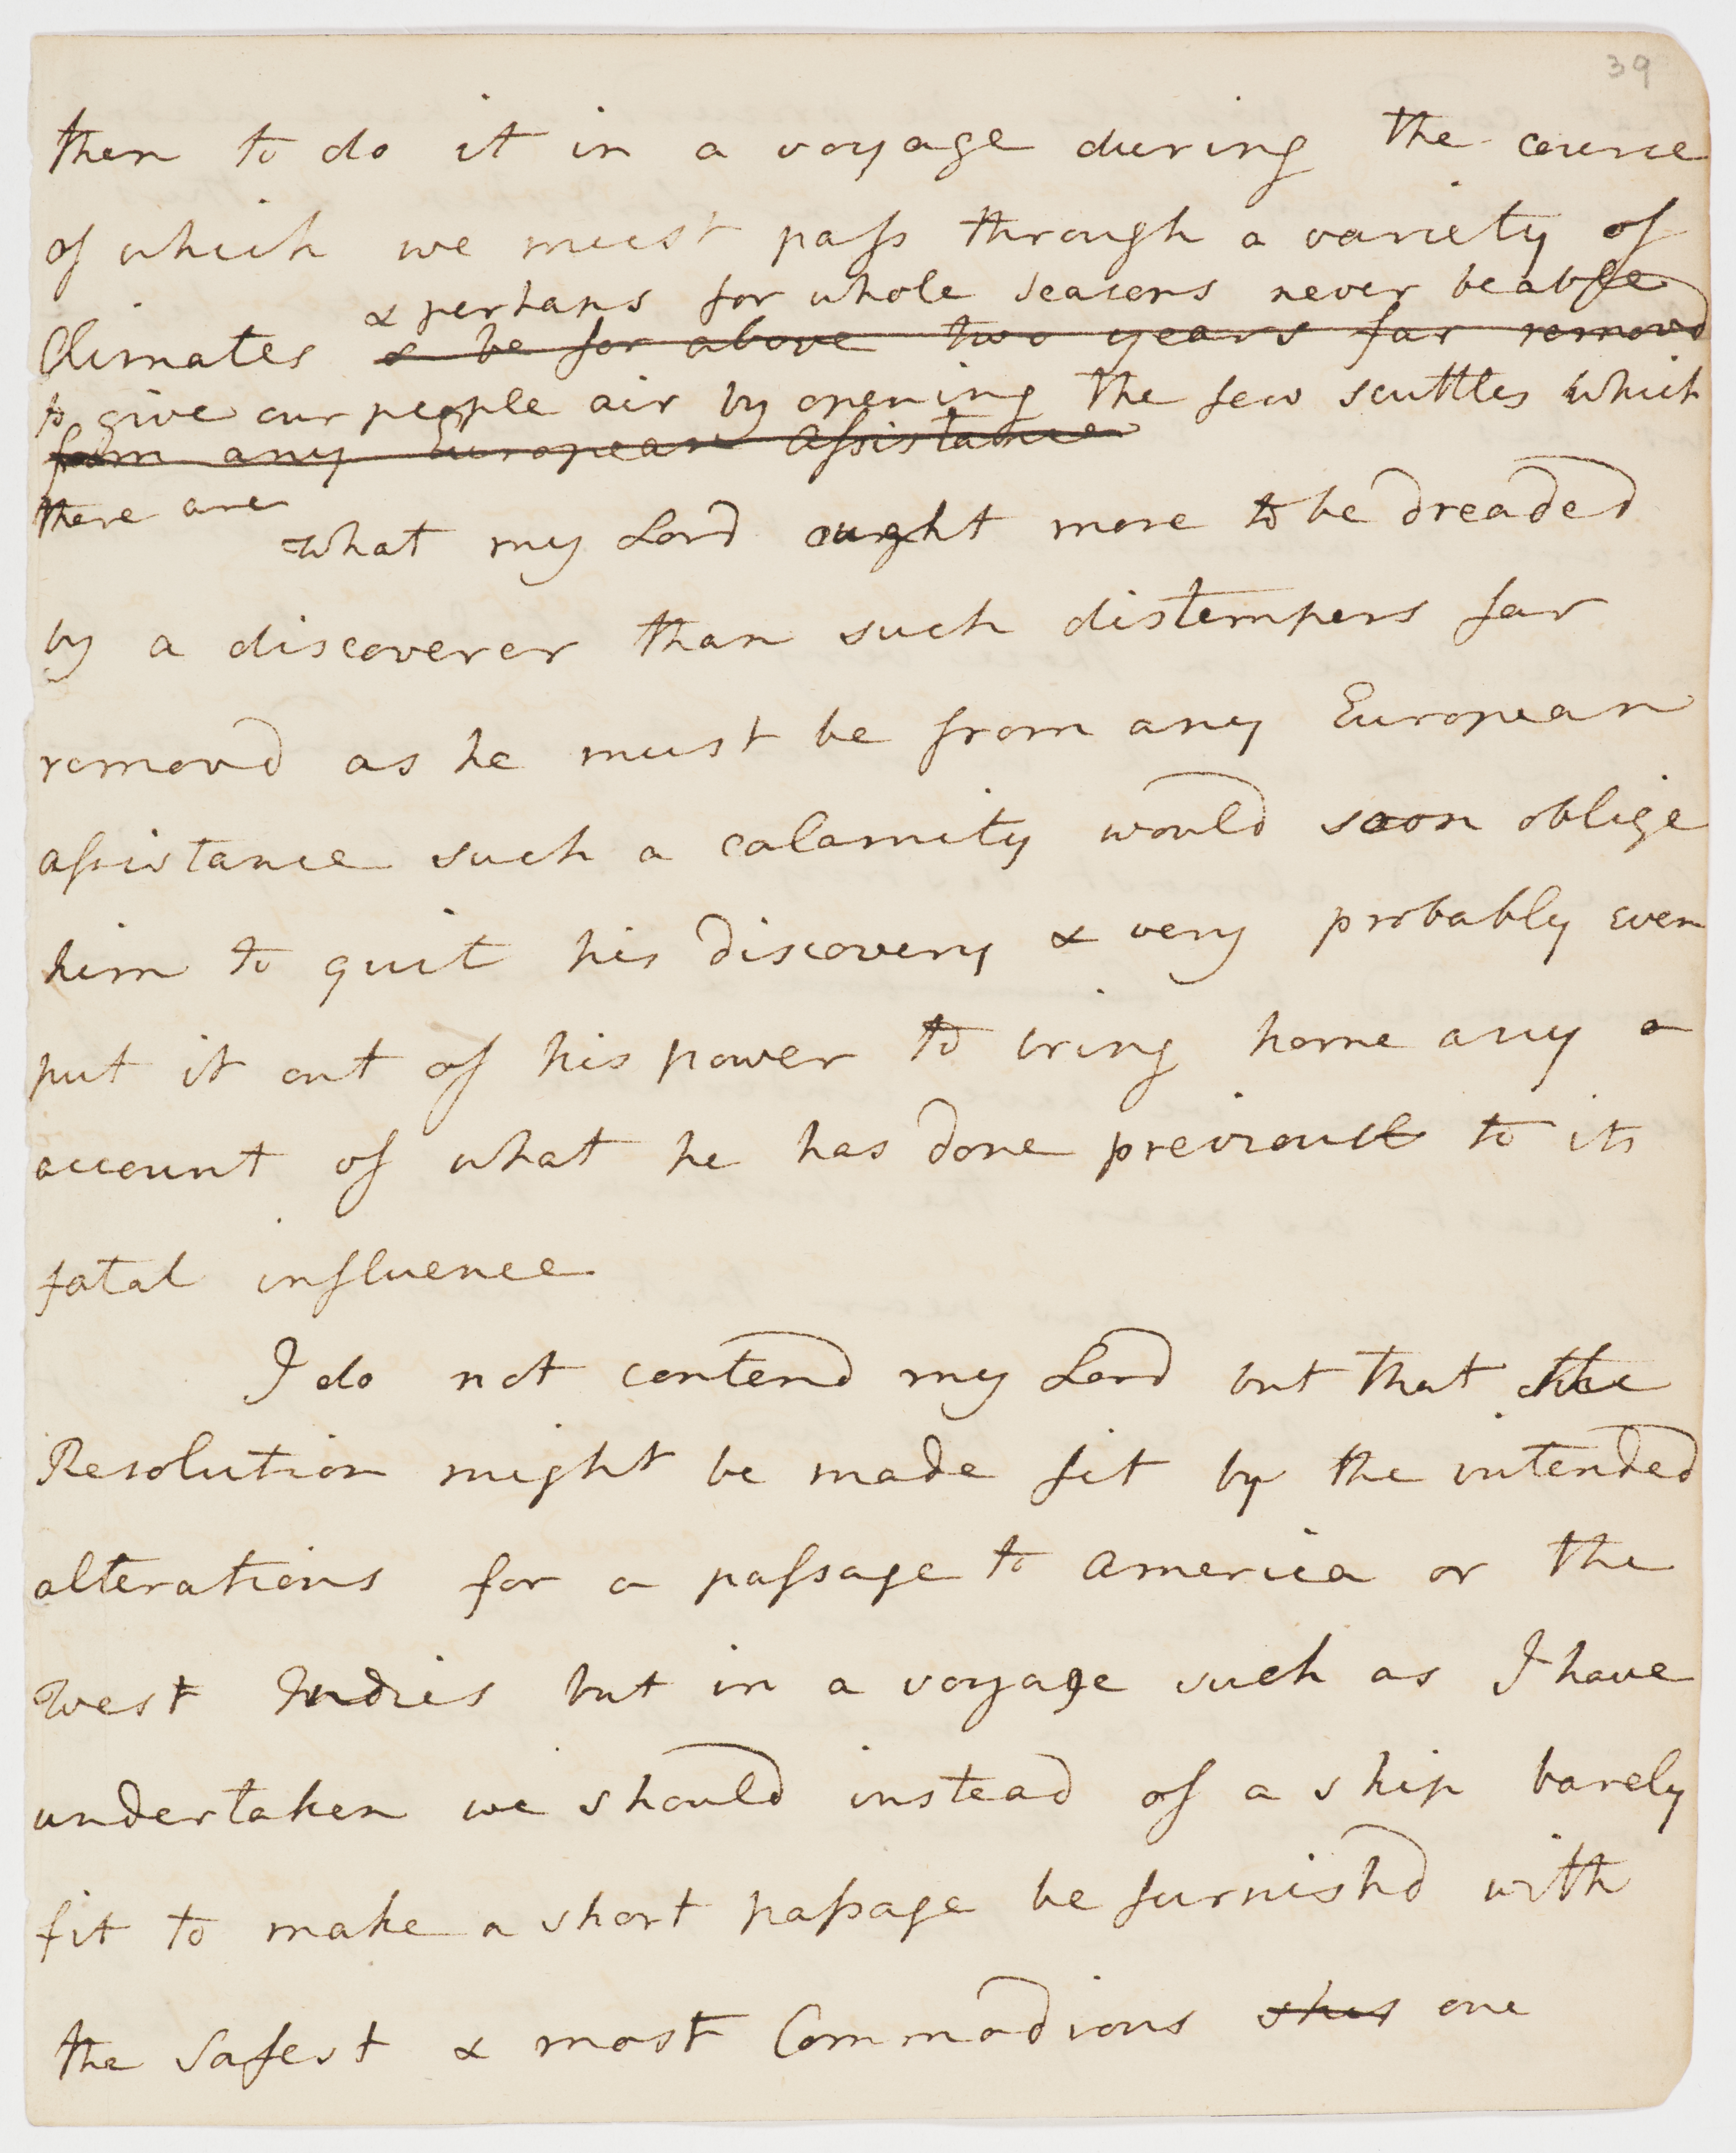 39
then to do it in a voyage during the course
of which we must pass through a variety of
& perhaps for whole seasons never be able
Climates & be for above two years far removd
to give our people air by opening the few scuttles which
from any European Assistance
there are
what my Lord ought more to be dreaded
by a discoverer than such distempers far
removd as he must be from any European
assistance such a calamity would soon oblige
him to quit his discovery & very probably even
put it out of his power to bring home any a
account of what he has done previous to its
fatal influence
I do not contend my Lord but that the
Resolution might be made fit by the intended
alterations for a passage to America or the
West Indies but in a voyage such as I have
undertaken we should instead of a ship barely
fit to make a short passage be furnishd with
the Safest & most Commodious one